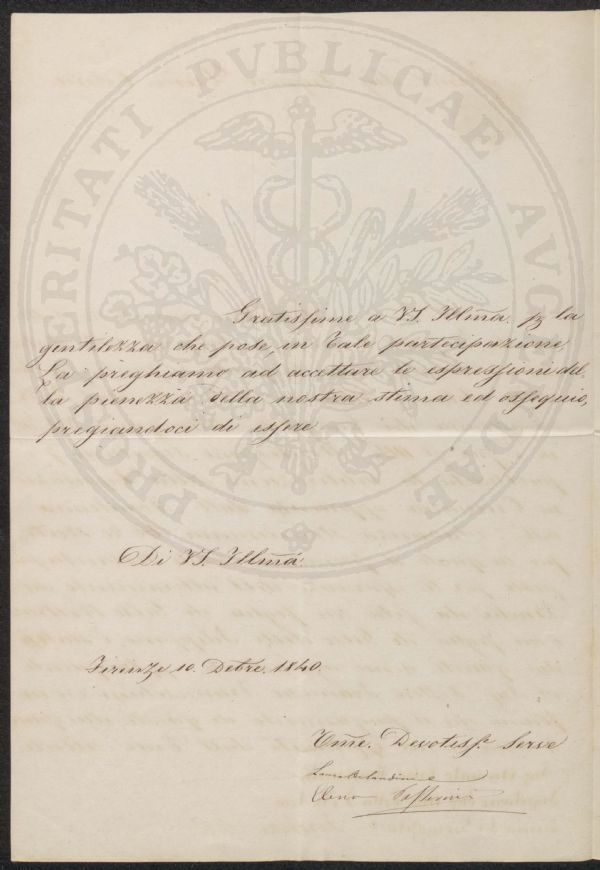 PROSPERITATI PVBLICAE AVGENDAE
Gratissime a VS. Illma. p la
gentilezza che pose in tale partecipazione
La preghiamo ad accettare le espressioni del
la pienezza della nostra stima ed ossequio,
pregiandoci di essere
Di VS. Illma
Firenze 10. Dcbre. 1840.
Ume. Devotiss.e Serve
Orlandini e